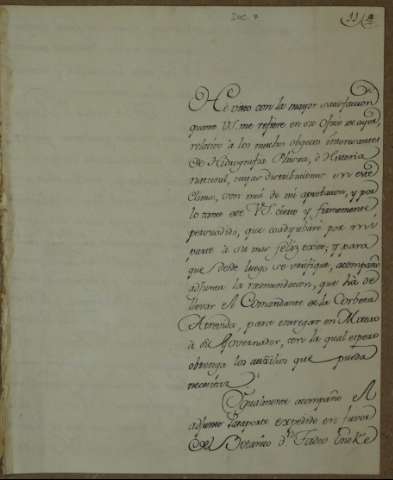 Doc. 7
He visto con la mayor satisfaccion
quanto V.S. me refiere en su Oficio de ayer
relativo á los muchos objetos interesantes
de Hidrografia Nautica, é Historia
natural, cuyas distribuciones en este
Clima, son mui de mi aprobacion, y por
lo tanto esté V.S. cierto y firmemente
persuadido, que coadyubaré por mi
parte á su mas feliz exito; y para
que desde luego se verifique, acompaño
adjunta la recomendacion, que há de
llevar el Comandante de la Corbeta
Atrevida, para entregar en
á su Governador, con la qual espero
obtenga los auxilios que pueda
necesitar.
Igualmente acompaño el
adjunto Pasaporte expedido en favor
del Botanico Dn. Tadeo